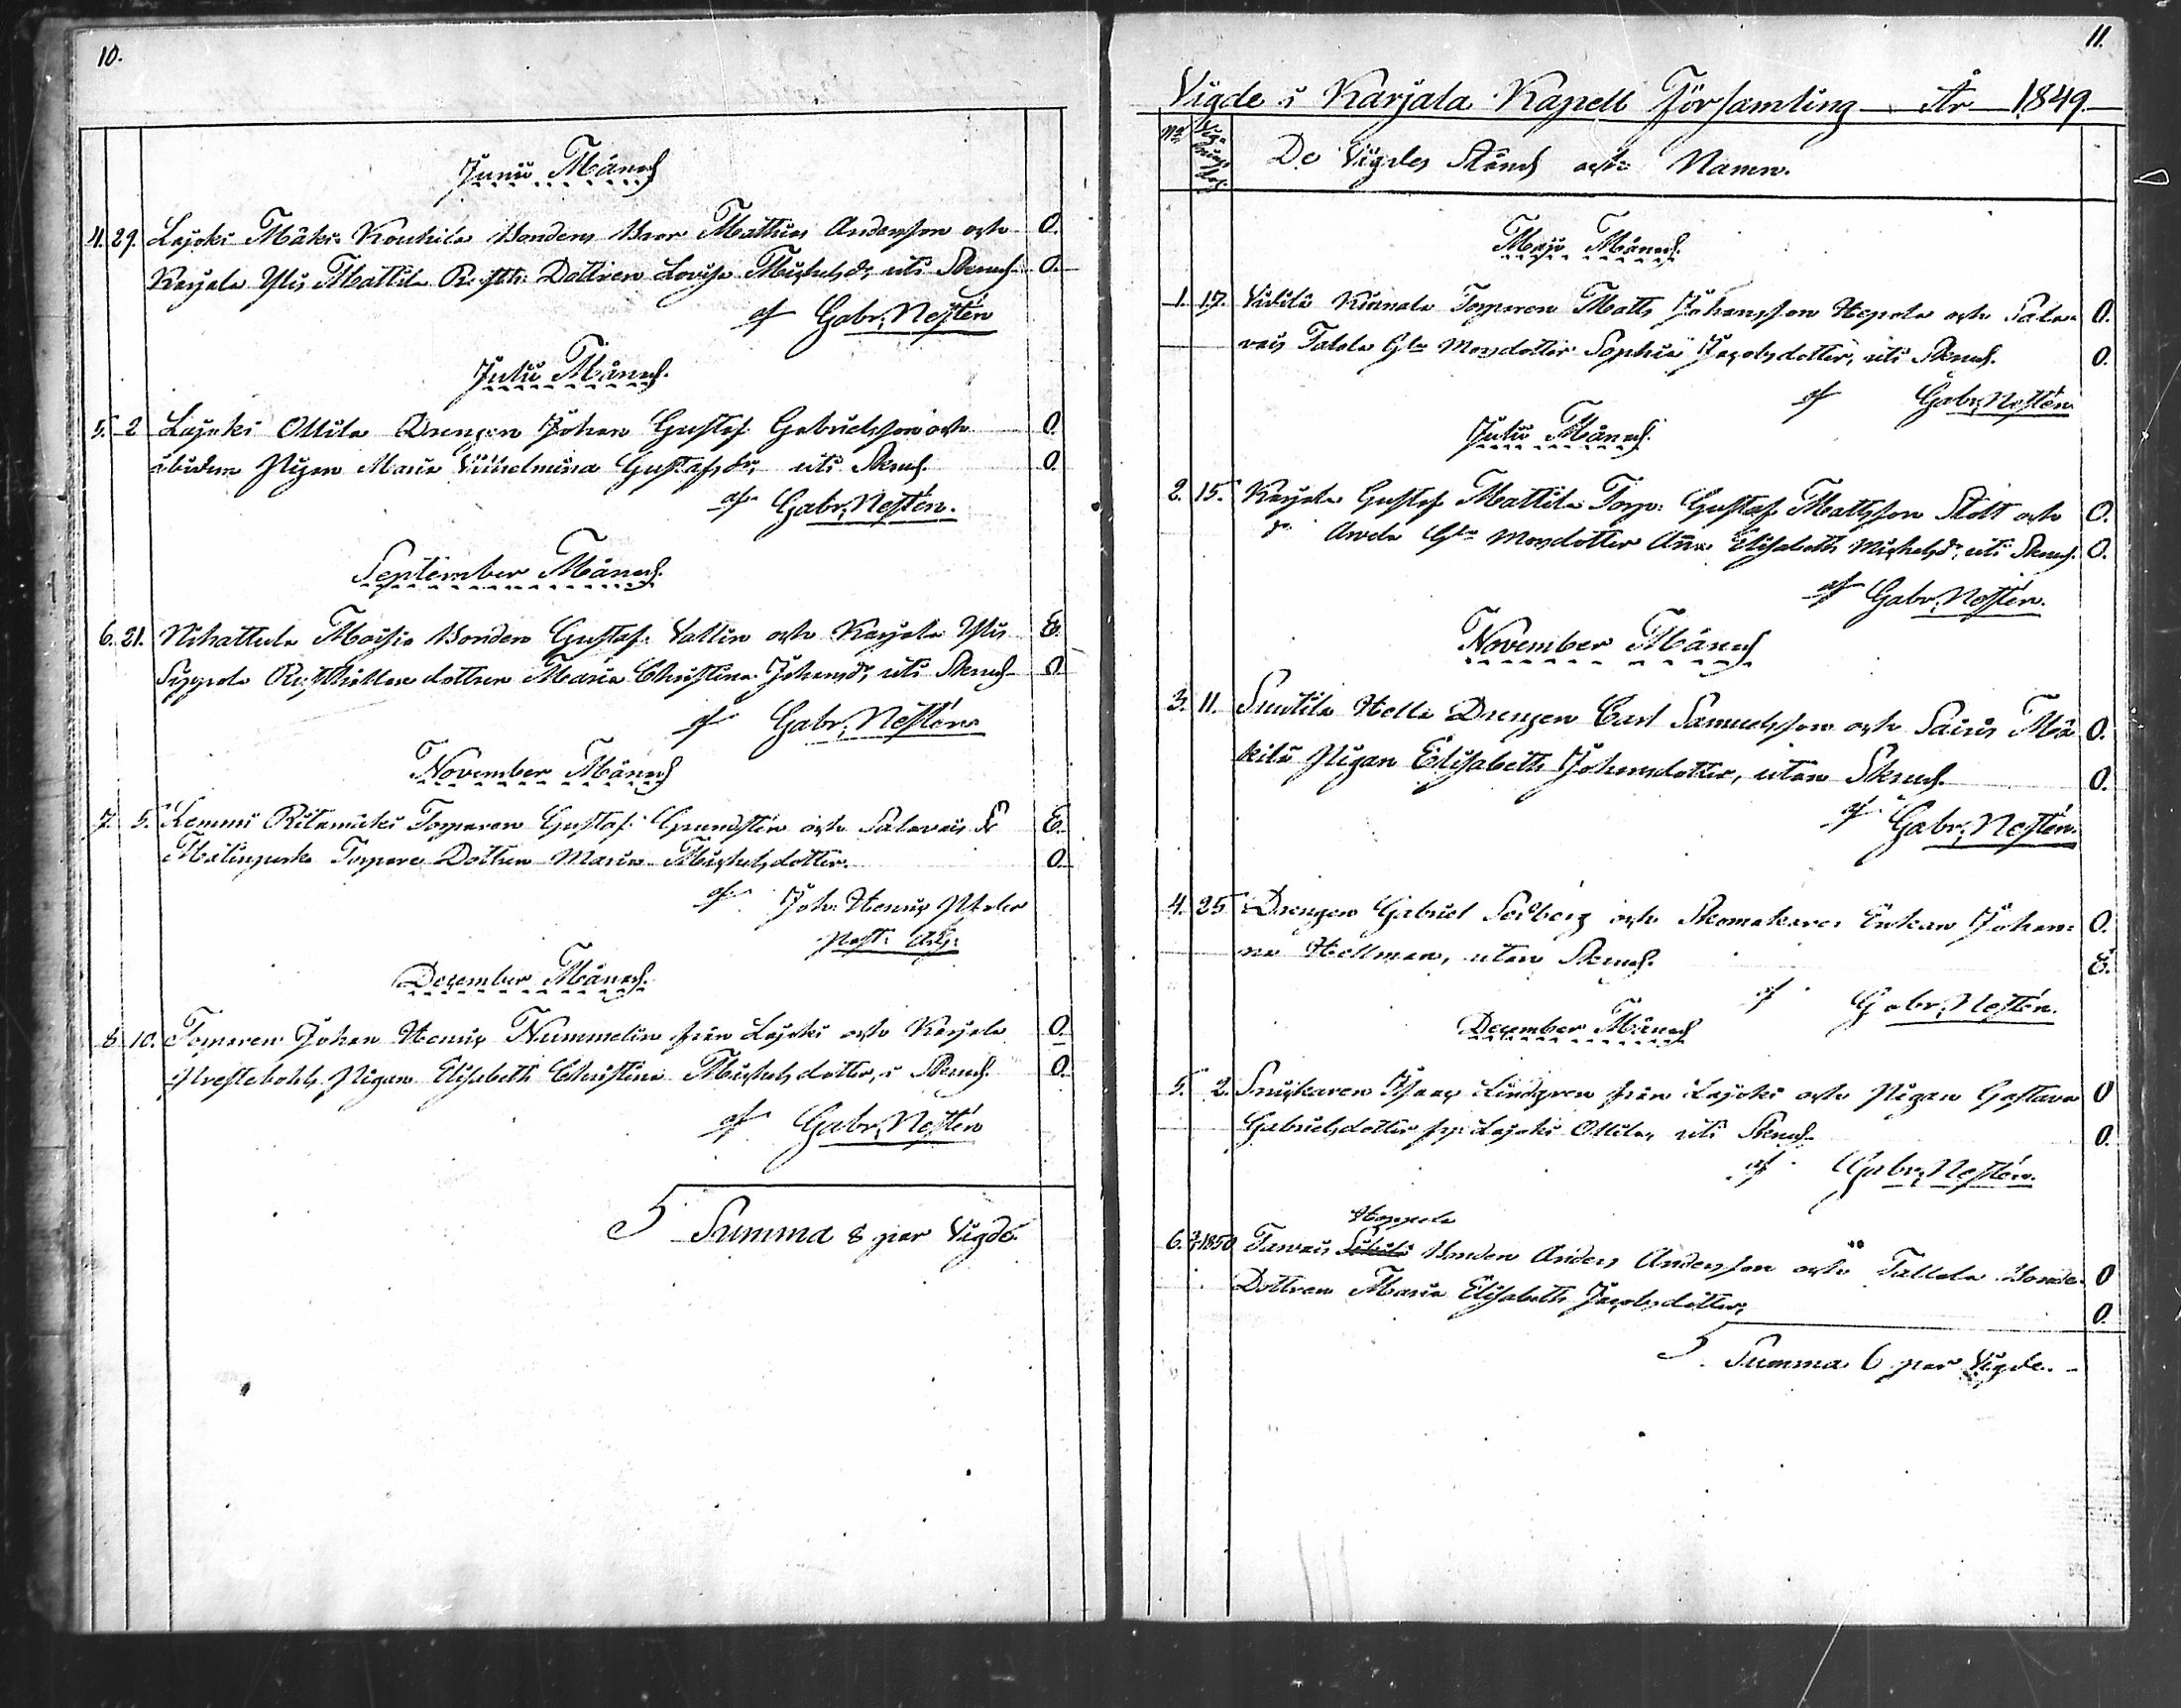 10.
Junii Månad
4. 29. Lajoki Mäki Kouhila Bondens Bror Matthias Andersson och O.
Karjala Ylis Mattila Rusth: Dottren Lovisa Michelsdr, uti Strand. O.
af Gabr, Nestén
Julii Månad.
5. 2 Lajoki Ollila Drengen Johan Gustaf Gabrielsson och O.
Pigan Maria Vilhelmina Gustafsdr, uti Strand. O.
af Gabr, Nestén.
September Månad.
6. 21. Nihattula Moisio Bonden Gustaf Vallin och Karjala Ylis E.
Seppola Rusthållare dottren Maria Christina Johansdr, uti Strand O
af Gabr, Nestén
November Månad
7. 5. Lemmi Ritamäki Torparen Gustaf Grundstén och Salavais E.
Torpare Dottren Maria Michelsdotter. O.
af Joh: Henric
Past: Adj:
December Månad.
8. 10. Torparen Johan Henric Nummelin från Lajoki och Karjala O.
Prestebohls Pigan Elisabeth Christina Michelsdotter, i Strand. O.
af Gabr, Nestén
Summa 8 par Vigde.
11.
Vigde i Karjala Kapell Församling År 1849.
No Vignings dag De Vigdes Stånd och Namn.
Maji Månad.
1. 17. Kinnala Torparen Matts Johansson Hepola och Sala= O.
vais Talola Gla Morsdotter Sophia Jacobsdotter, uti Strand. O.
af Gabr, Nestén
Julii Månad.
2. 15. Karjala Gustaf Mattila Torp: Gustaf Mattsson Stolt och O.
do Anola Gla Morsdotter Anna Elisabeth Michelsdr, uti Strand. O.
af Gabr, Nestén.
November Månad
3. 11. Suutila Hella Drengen Carl Samuelsson och Sairis Mä O.
kilä Pigan Elisabeth Johansdotter, utan Strand. O.
af Gabr, Nestén.
4. 25 Drengen Gabriel Sedberg och Skomakare Enkan Johan= O.
na Hellman, utan Strand. E.
af Gabr, Nestén.
December Månad
5. 2. Snickaren Isaac Lindgren från Lajoki och Pigan Gustava O
Gabrielsdotter fr. Lajoki Ollila, uti Strand. O.
af Gabr, Nestén.
Hoppala
6. 1850 Tarvais Bonden Anders Andersson och Tallola Bonde- O
Dottren Maria Elisabeth Jacobsdotter, O.
Summa 6 par Vigde.